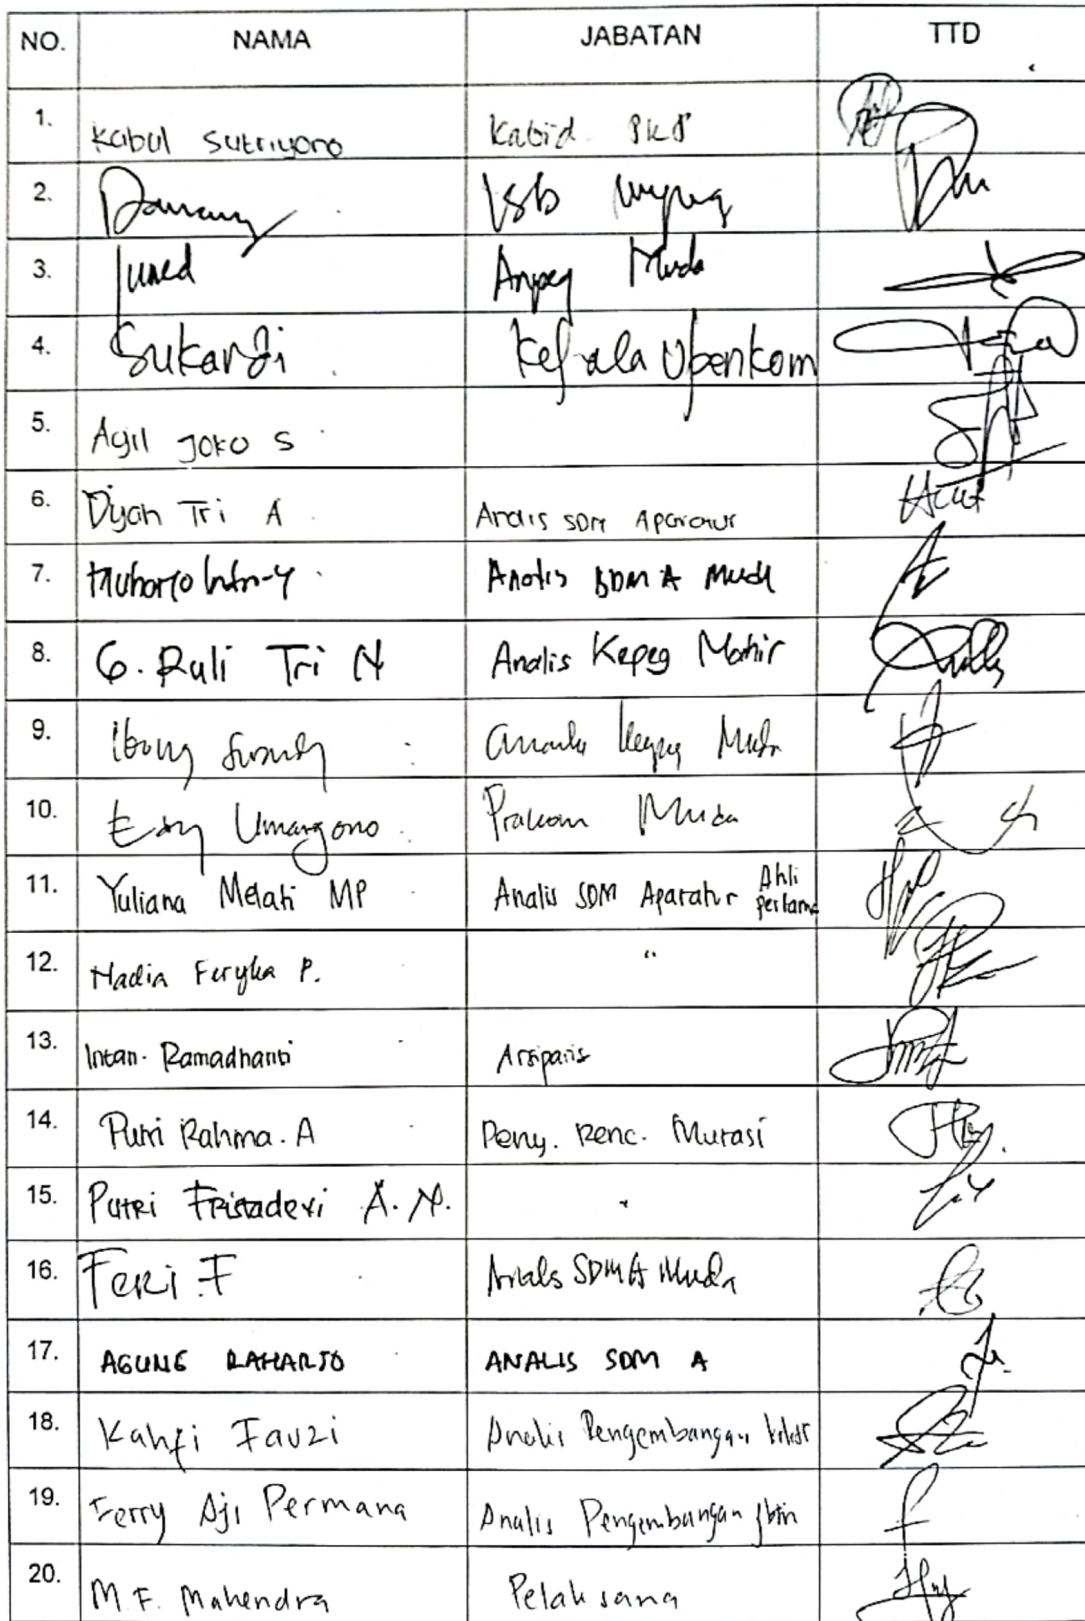 NO. NAMA JABATAN TTD
1. Kabul Sutriyono Kabid PKP
2. Danang Muda
3. Juned Anpeg Muda
4. Sukardi Kepala Upenkom
5. Agil Joko S
6. Dyah Tri A Analis SDM Aparatur
7. Muharjo Analis SDM A Muda
8. G. Ruli Tri N Analis Kepeg Mahir
9. Kepeg Muda
10. Umargono Prakom Muda
11. Yuliana Melati MP Analis SDM Aparatur Ahli pertama
12. Nadia Feryka P. "
13. Intan Ramadhanti Arsiparis
14. Putri Rahma. A Peny. Renc. Mutasi
15. Putri Fristadevi A. N. "
16. Feri. F Analis SDM A Muda
17. AGUNG RAHARJO ANALIS SDM A
18. Kahfi Fauzi Analis Pengembangan
19. Ferry Aji Permana Analis Pengembangan
20. M. F. Mahendra Pelaksana